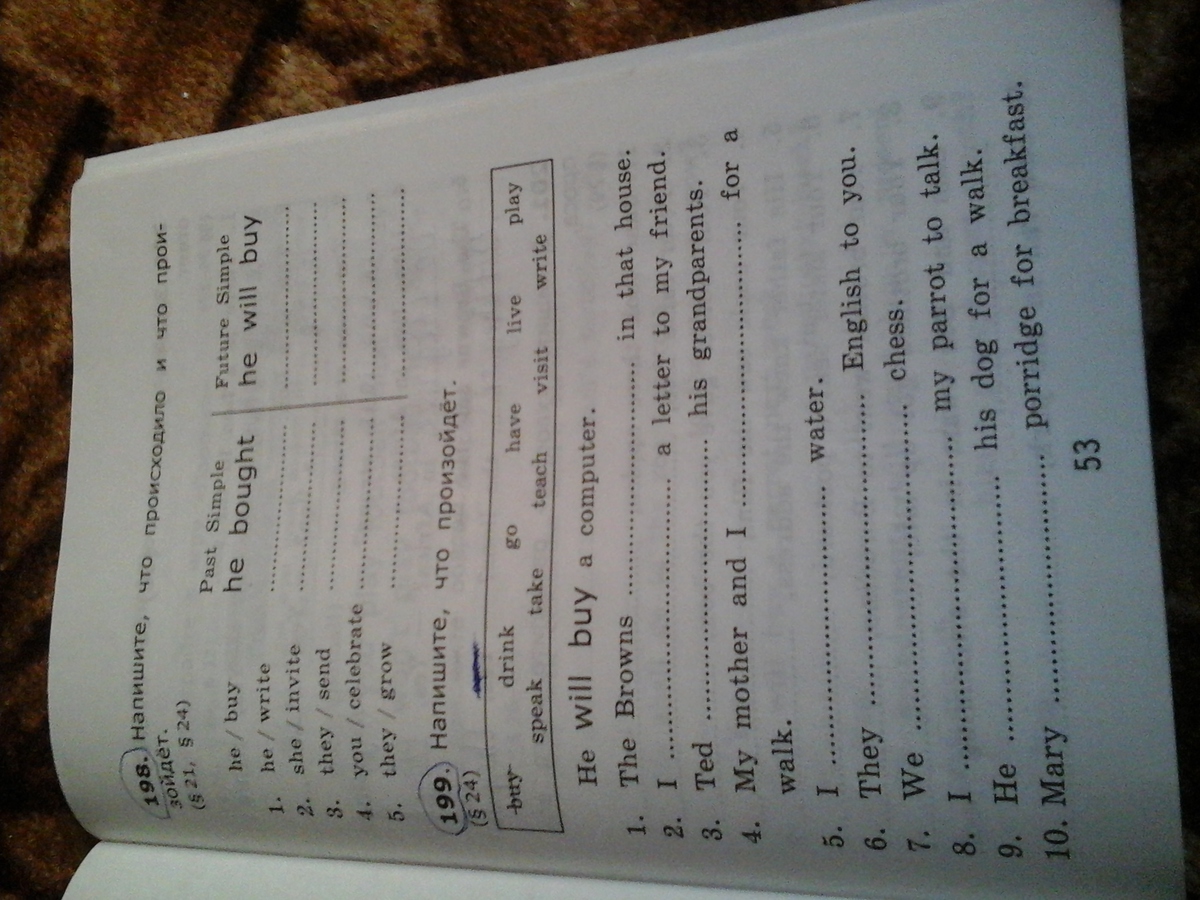 198. Напишите, что происходило и что прои-
зойдёт.
(§ 21, § 24)
Past Simple Future Simple
he / buy he bought he will buy
1. he / write ........................ ........................
2. she / invite ........................ ........................
3. they / send ........................ ........................
4. you / celebrate ........................ ........................
5. they / grow ........................ ........................
199. Напишите, что произойдёт.
(§ 24)
buy drink go have live play
speak take teach visit write
He will buy a computer.
1. The Browns ........................ in that house.
2. I ........................ a letter to my friend.
3. Ted ........................ his grandparents.
4. My mother and I ........................ for a
walk.
5. I ........................ water.
6. They ........................ English to you.
7. We ........................ chess.
8. I ........................ my parrot to talk.
9. He ........................ his dog for a walk.
10. Mary ........................ porridge for breakfast.
53